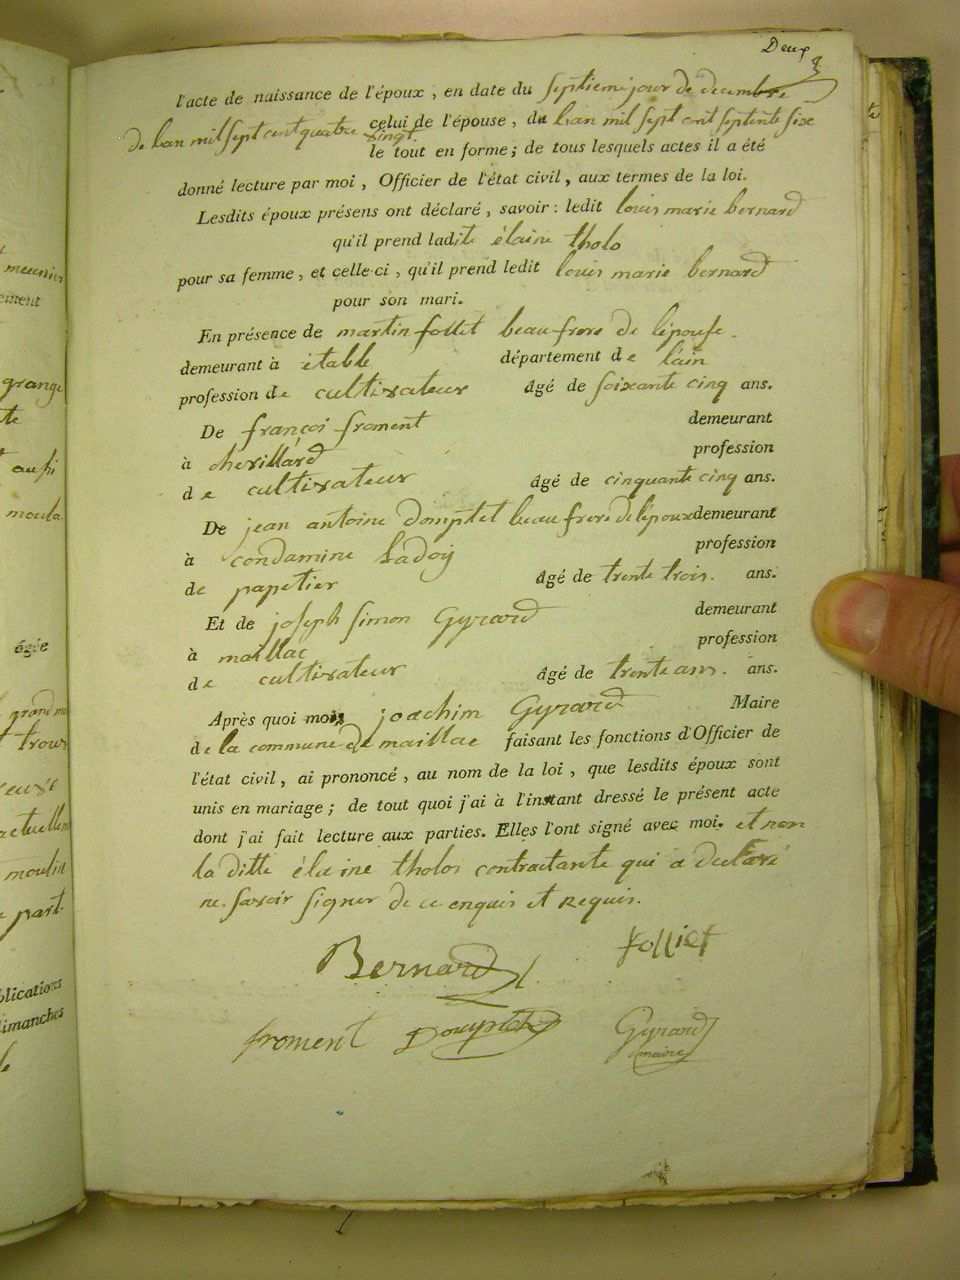 Deux
l'acte de naissance de l'époux, en date du septieme jour de decembre
de l'an mil sept cent quatre vingt celui de l'épouse, du l'an mil sept cent septente six
le tout en forme; de tous lesquels actes il a été
donné lecture par moi, Officier de l'état civil, aux termes de la loi.
Lesdits époux présens ont déclaré, savoir: ledit louis marie bernard
qu'il prend ladite élaine tholo
pour sa femme, et celle-ci, qu'il prend ledit louis marie bernard
pour son mari.
En présence de martin folliet beau frere de lépouse
demeurant à étable département de l'ain
profession de cultivateur âgé de soixante cinq ans.
De françoi froment demeurant
à chevillard profession
de cultivateur âgé de cinquante cinq ans.
De jean antoine domptet beau frere de lépoux demeurant
à condamine ladoÿ profession
de papetier âgé de trente trois. ans.
Et de joseph simon Gyrard demeurant
à maillac profession
de cultivateur âgé de trente ans. ans.
Après quoi moi joachim Gyrard Maire
de la commune de maillac faisant les fonctions d'Officier de
l'état civil, ai prononcé, au nom de la loi, que lesdits époux sont
unis en mariage; de tout quoi j'ai à l'instant dressé le présent acte
dont j'ai fait lecture aux parties. Elles l'ont signé avec moi. et non
la ditte élaine tholoi contractante qui a declaré
ne savoir signer de ce enquis et requis.
Bernard folliet
froment Domptet Gyrard
maire
meunier
ement
grange
te
aussi
moula
égie
grand
actuellem
moulin
part
blications
dimanches